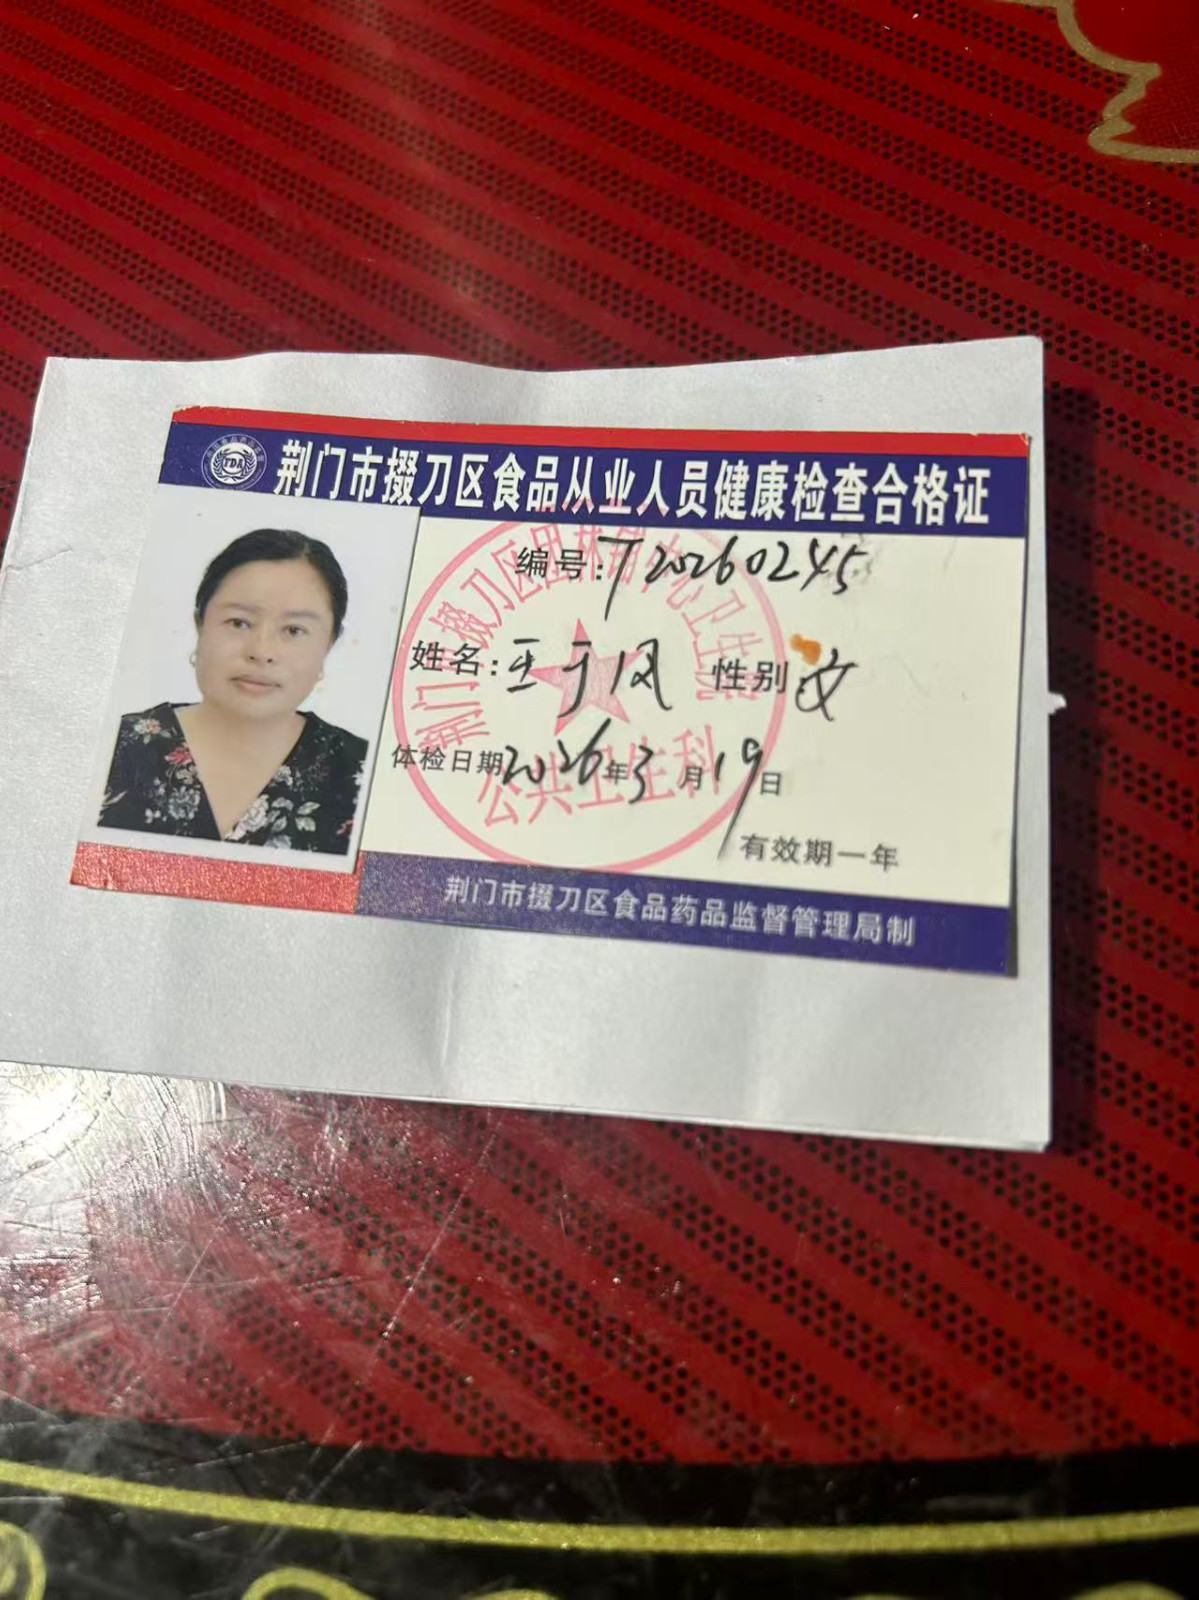 荆门市掇刀区食品从业人员健康检查合格证
FDA
编号:T20260245
姓名:王于凤 性别 女
体检日期2026年3月19日
有效期一年
荆门市掇刀区食品药品监督管理局制
荆门市掇刀区团林铺中心卫生院
公共卫生科